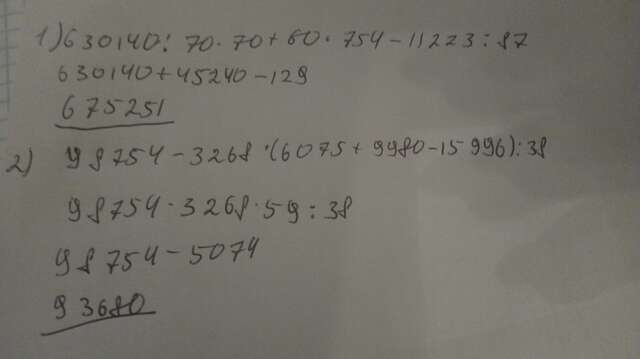 1) 630140 : 70 · 70 + 60 · 754 - 11223 : 87
630140 + 45240 - 129
675251
2) 98754 - 3268 · (6075 + 9980 - 15996) : 38
98754 · 3268 · 59 : 38
98754 - 5074
93680